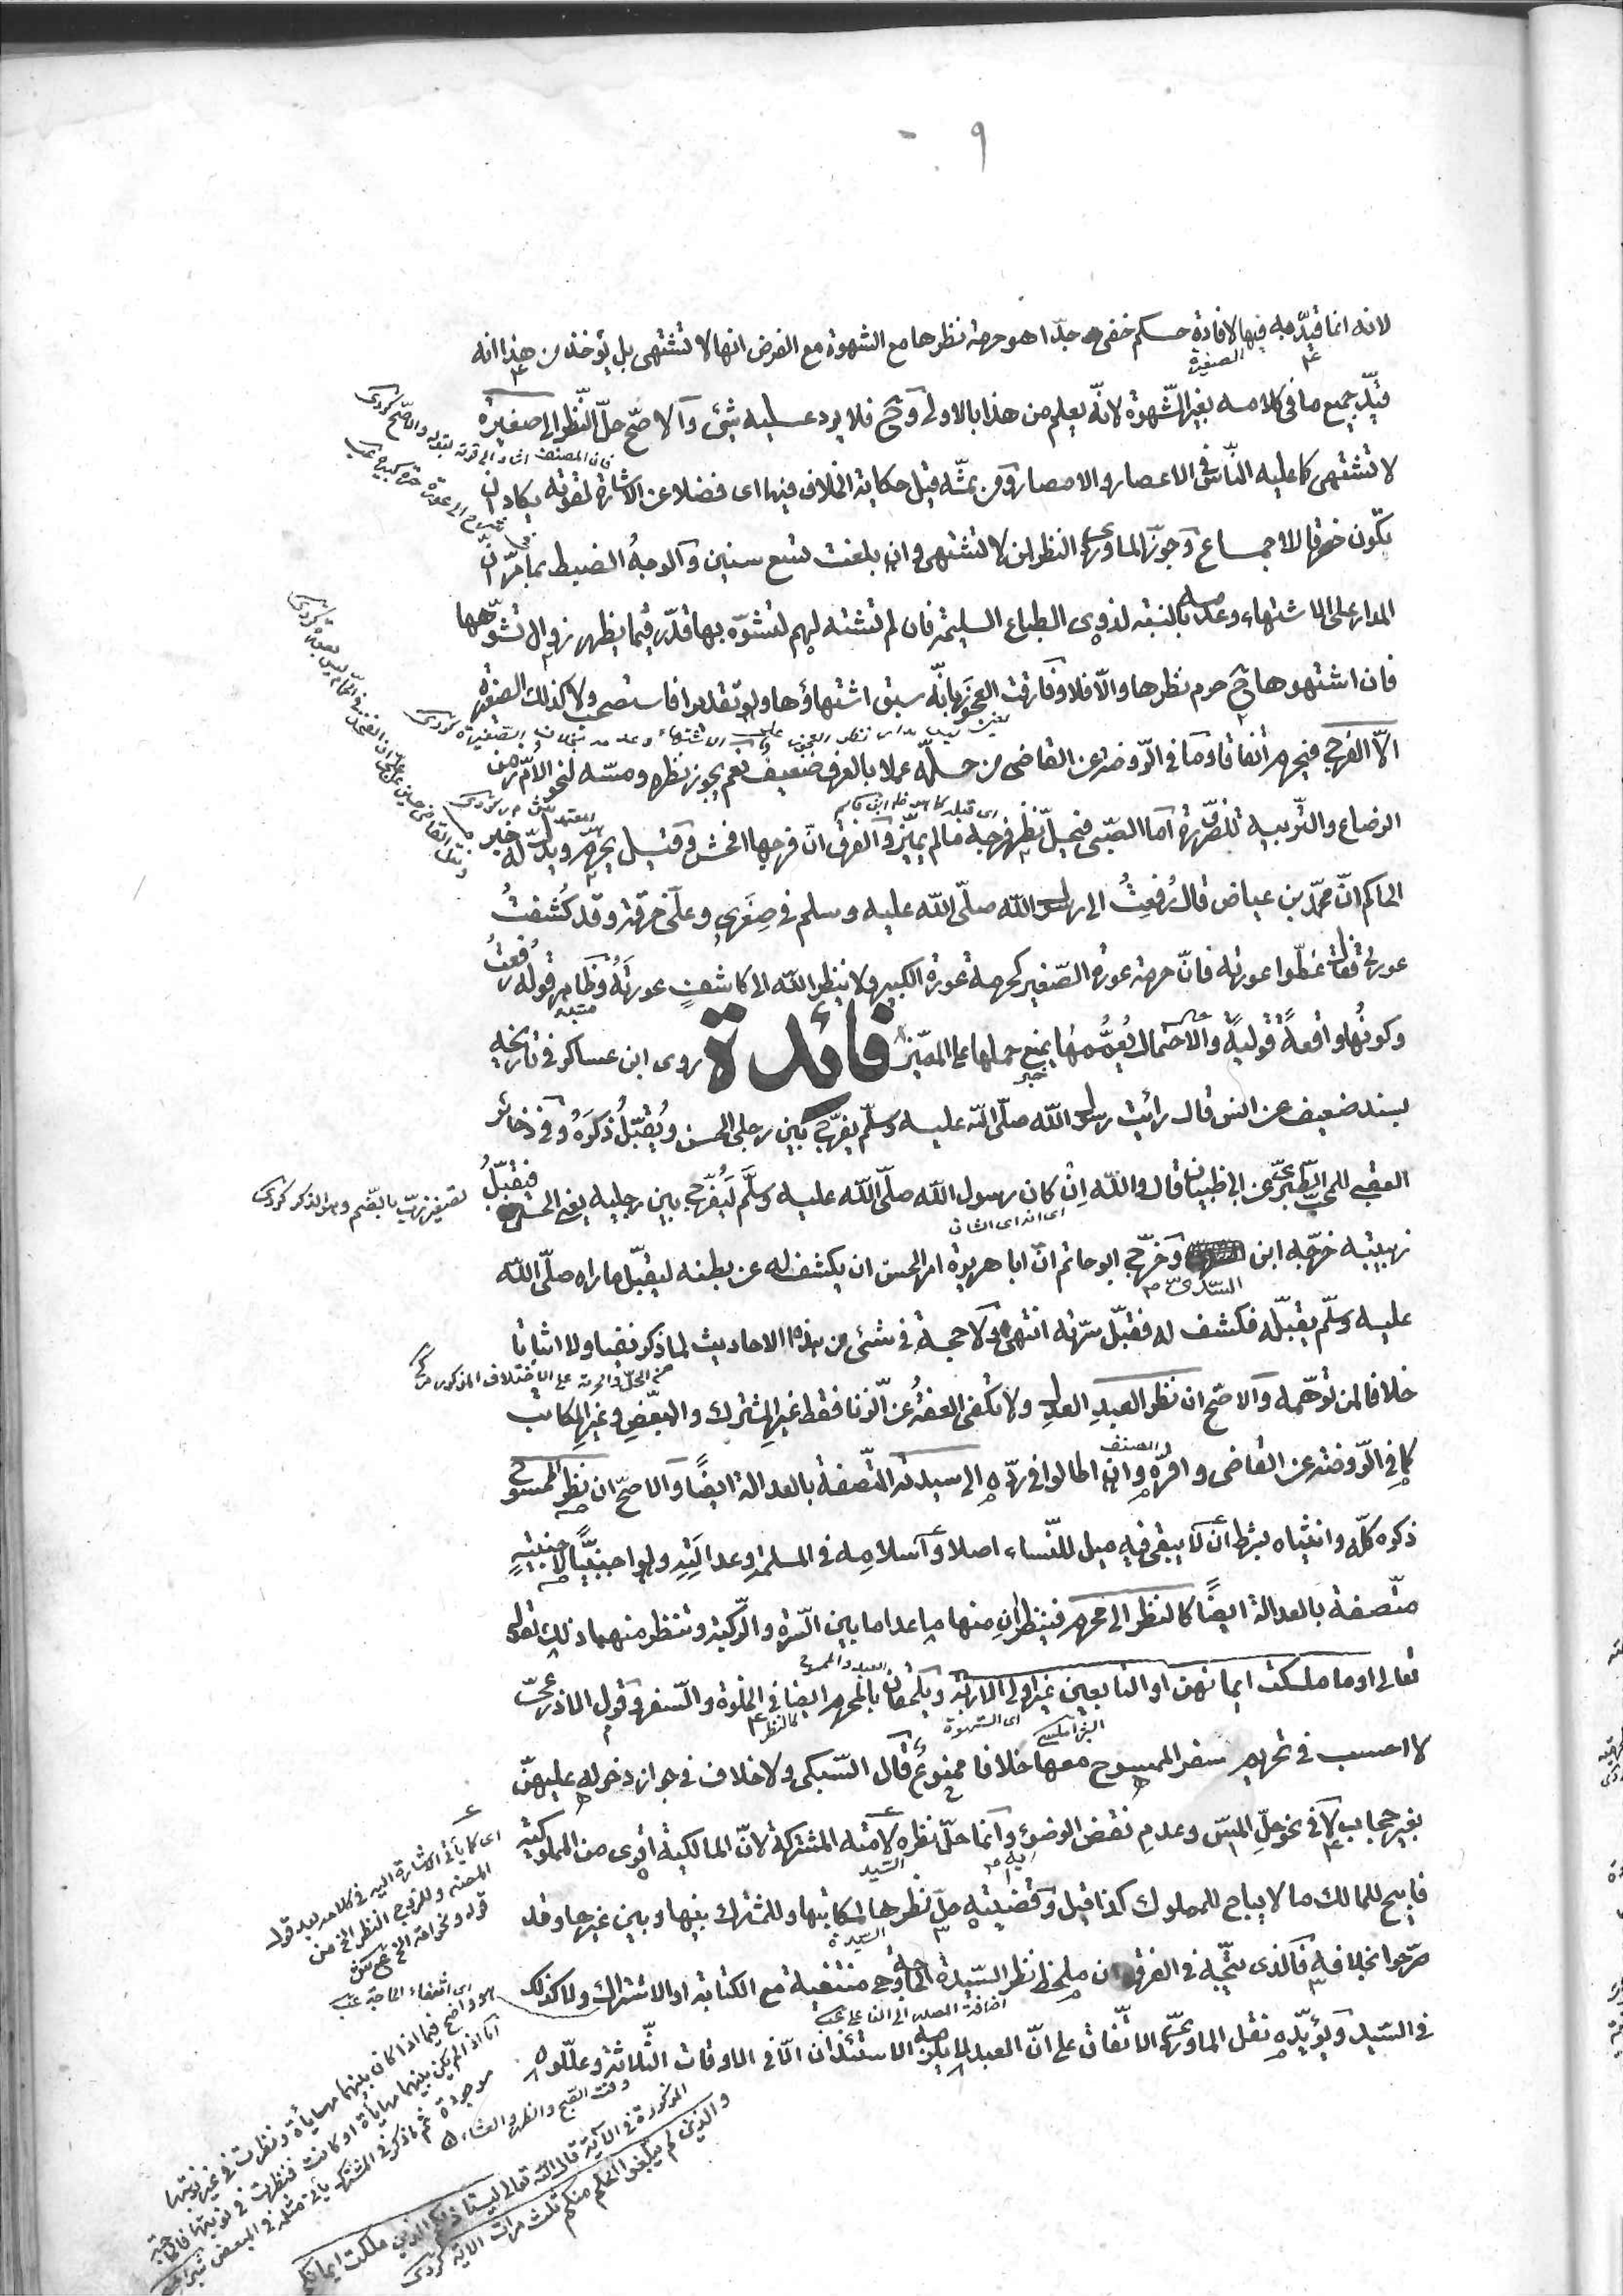 ٩
لانه انما قيّد به فيها لافادة حكم خفى جدّا هو حرمة نظرها مع الشهوة مع الفرض انها لا تشتهى بل يؤخذ من هذا انه
الصغيرة
قيّد جميع ما فى كلامه بغير الشّهوة لانّه يعلم من هذا بالاولى وح فلا يرد عليه شئ والاصّح حلّ النّظر الى صغيرة
فان المصنف اشار الى قوته بقوله والاصّح كردى
لا تشتهى كما عليه النّاس فى الاعصار والامصار ومن ثمّه قيل حكاية الخلاف فيها اى فضلا عن الاشارة لقوّته يكاد ان
يكون خرقا للاجماع وجوّز الماوردى النظر لمن لا تشتهى وان بلغت تسع سنين والوجه الضبط بما مرّ انّ
المدار على الاشتهاء وعدمه بالنسبة لذوى الطباع السليمة فان لم تشته لهم لتشوّه بها قدّر فيما يظهر زوال تشوّهها
فان اشتهوها ح حرم نظرها والّا فلا وفارقت العجوز بانّه سبق اشتهاؤها ولو تقديرا فاستصحب ولا كذلك الصغيرة
الّا الفرج فيحرم اتّفاقا وما فى الرّوضة عن القاضى من حلّه عملا بالعرف ضعيف نعم يجوز نظره ومسّه لنحو الامّ زمن
الرضاع والتّربية للضّرورة امّا الصّبى فيحلّ نظر فرجه ما لم يميّز والفرق انّ فرجها افحش وقيل يحرم ويدلّ له خبر
الحاكم انّ محمّد بن عياض قال رُفعتُ الى رسول الله صلّى الله عليه وسلم فى صِغَرى وعلىّ خرقة وقد كُشفتْ
عورتى فقال غطّوا عورته فانّ حرمة عورة الصّغير كحرمة عورة الكبير ولا ينظر الله الى كاشف عورتَهُ وظاهر قوله رُفعتُ
وكونُها واقعةً قوليةً والاحتمال يعمُّها يمنع حملها على المميّز فائدة روى ابن عساكر فى تاريخه
بسند ضعيف عن انس قال رأيت رسول الله صلّى الله عليه وسلّم يفرّج بين رجلى الحسن ويُقبّلُ ذكرَهُ وفى ذخائر
العقبى للمحبّ الطّبرىّ عن ابى ظبيان قال والله اِنْ كان رسول الله صلّى الله عليه وسلّم لَيُفرّج بين رجليه يعنى الحسن فيقبّلُ
اى انه اى الشان
تصغير زبّ بالضّم وهو الذكر كردى
زبيبته خرّجه ابن السّرى وخرّج ابو حاتم انّ ابا هريرة امر الحسن ان يكشف له عن بطنه ليقبّل ما راه صلّى الله
عليه وسلّم يقبّله فكشف له فقبّل سرّته انتهى ولا حجة فى شئ من هذه الاحاديث لما ذكر نفيا ولا اثباتا
من الحلّ والحرمة على الاختلاف المذكور
خلافا لمن توهّمه والاصّح ان نظر العبد العدل ولا تكفى العفّةُ عن الزنا فقط غير المشترك والمبعّضِ وغير المكاتب
كما فى الرّوضة عن القاضى واقرّه وان اطالوا فى ردّه الى سيدته المتّصفة بالعدالة ايضًا والاصحّ ان نظر ممسوح
المصنف
ذكره كلّه وانثياه بشرط ان لا يبقى فيه ميل للنّساء اصلا واسلامِه فى المسلمة وعدالتِه ولو اجنبيًّا لاجنبيةٍ
متّصفة بالعدالة ايضًا كالنظر الى محرم فينظرانِ منها ما عدا ما بين السّرة والرّكبة وتنظر منهما ذلك لقوله
تعالى او ما ملكت ايمانهن او التابعين غير اولى الاربة ويلحقان بالمحرم ايضا فى الخلوة والسّفر وقول الاذرعىّ
اى الشهوة
كالنظر
لا احسب فى تحريم سفر الممسوح معها خلافا ممنوع قال السّبكى ولا خلاف فى جواز دخوله عليهنّ
بغير حجاب لا فى نحو حلّ المسّ وعدم نقض الوضوء وانّما حلّ نظره لامته المشتركة لانّ المالكية اقوى من المملوكية
السّيد
فابيح للمالك ما لا يباح للمملوك كذا قيل وقضيتُه حلّ نظرها لمكاتبها وللمشترك بينها وبين غيرها وقد
السّيدة
صرّحوا بخلافه فالّذى يتّجه فى الفرق ان ملحظ نظر السّيدة الحاجة وهى منتفية مع الكتابة او الاشتراك ولا كذلك
فى السّيد ويؤيّده نقل الماوردىّ الاتّفاق على انّ العبد لا يلزمه الاستئذان الّا فى الاوقات الثّلاثة وعلّلوه
اى كما يأتى الاشارة اليه فى كلامه بعد قول
اى انتفاء الحاجة
وقت الصّبح والظهر والعشاء
المذكورة فى الآية قال الله تعالى ليستاذنكم الذين ملكت ايمانكم
والذين لم يبلغوا الحلم منكم ثلث مرات الاية كردى